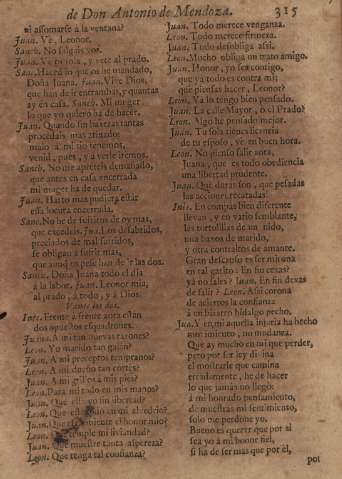 de Don Antonio de Mendoza. 315
ni assomarse a la ventana?
Juan. Ve, Leonor.
Sanch. No salgais vos.
Juan. Ve, y vete al prado.
San. Hareis lo que os he mandado,
Doña Juana. Juan. Vive Dios,
que han de ir entrambas, y quantas
ay en casa. Sanch. Mi muger
lo que yo quiero ha de hacer.
Juan. Quando sin baxezas tantas
procedais mas
venid, pues, y a verle iremos.
Sanch. No me apreteis demasiado,
que antes en casa encerrada
mi muger ha de quedar.
Juan. Harto mas pudiera estar
essa locura encerrada.
Sanch. No he de sufriros de oy mas,
que excedeis. Jua. Los desabridos,
preciados de mal sufridos,
se obligan a sufrir mas,
que aunque os pese han de ir las dos.
Sanch. Doña Juana todo el dia
a la labor. Juan. Leonor mia,
al prado, a todo, y a Dios.
Vanse los dos.
Ines. Frente a frente aora están
dos opuestos esquadrones.
Juana. A mi tan nuevas razones?
Leon. Yo mando tan galan?
Juan. A mi preceptos tempranos?
Leon. A mi dueño tan cortès?
Juan. A mi grillos a mis pies?
Leon. Para mi todo en mis manos?
Juan. Que estè yo sin libertad?
Leon. Que estè todo en mi alvedrio?
Juan. Que el honor mio?
Leon. Que temple mi liviandad?
Juan. Que muestre tanta aspereza?
Leon. Que tenga tal confianza?
Juan. Todo merece venganza.
Leon. Todo merece firmeza.
Juan. Todo desobliga assi.
Leon. Mucho obliga un trato amigo.
Juan. Honor, yo soy contigo,
que ya todo es contra mi;
què piensas hacer, Leonor?
Leon. Ya lo tengo bien pensado.
Juan. La calle Mayor, o el Prado?
Leon. Algo he pensado mejor.
Juan. Tu sola tienes licencia
de tu esposo, vè en buen hora.
Leon. No pienso salir aora,
Juana, que es todo obediencia
una libertad prudente.
Juan. Què duras son, què pesadas
las acciones recatadas!
Ines. En compàs bien diferente
llevan, y en vario semblante,
las tortolillas de un nido,
una baxos de marido,
y otra contraltos de amante.
Gran descanso es ser mirona
en tal garito: En fin cesas?
ya no sales? Juan. En fin dexas
de salir? Leon. Assi corona
de aciertos la confianza
à un bizarro hidalgo pecho.
Jua. Y en mi aquella injuria ha hecho
sentimiento, no mudanza.
Que ay mucho en mi que perder,
pero por ser ley divina
el mostrarse que camina
erradamente, he de hacer
lo que jamàs no llegò:
à mi honrado pensamiento,
de muestras mi sentimiento,
solo me perdone yo.
Bueno es querer que por èl
sea yo à mi honor fiel,
si ha de ser mas que por èl,
por